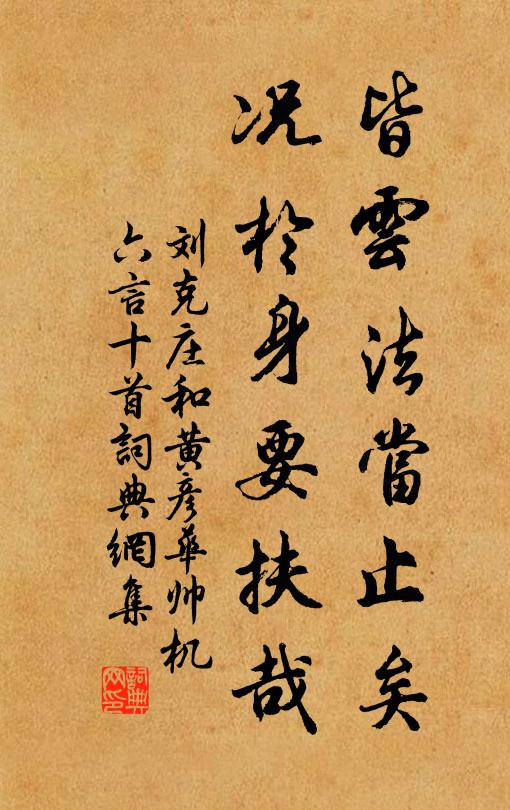 皆雲法當止矣
况於身要扶哉
刘克庄和黄彦華帅机
六言十首詞典網集
詞典網印